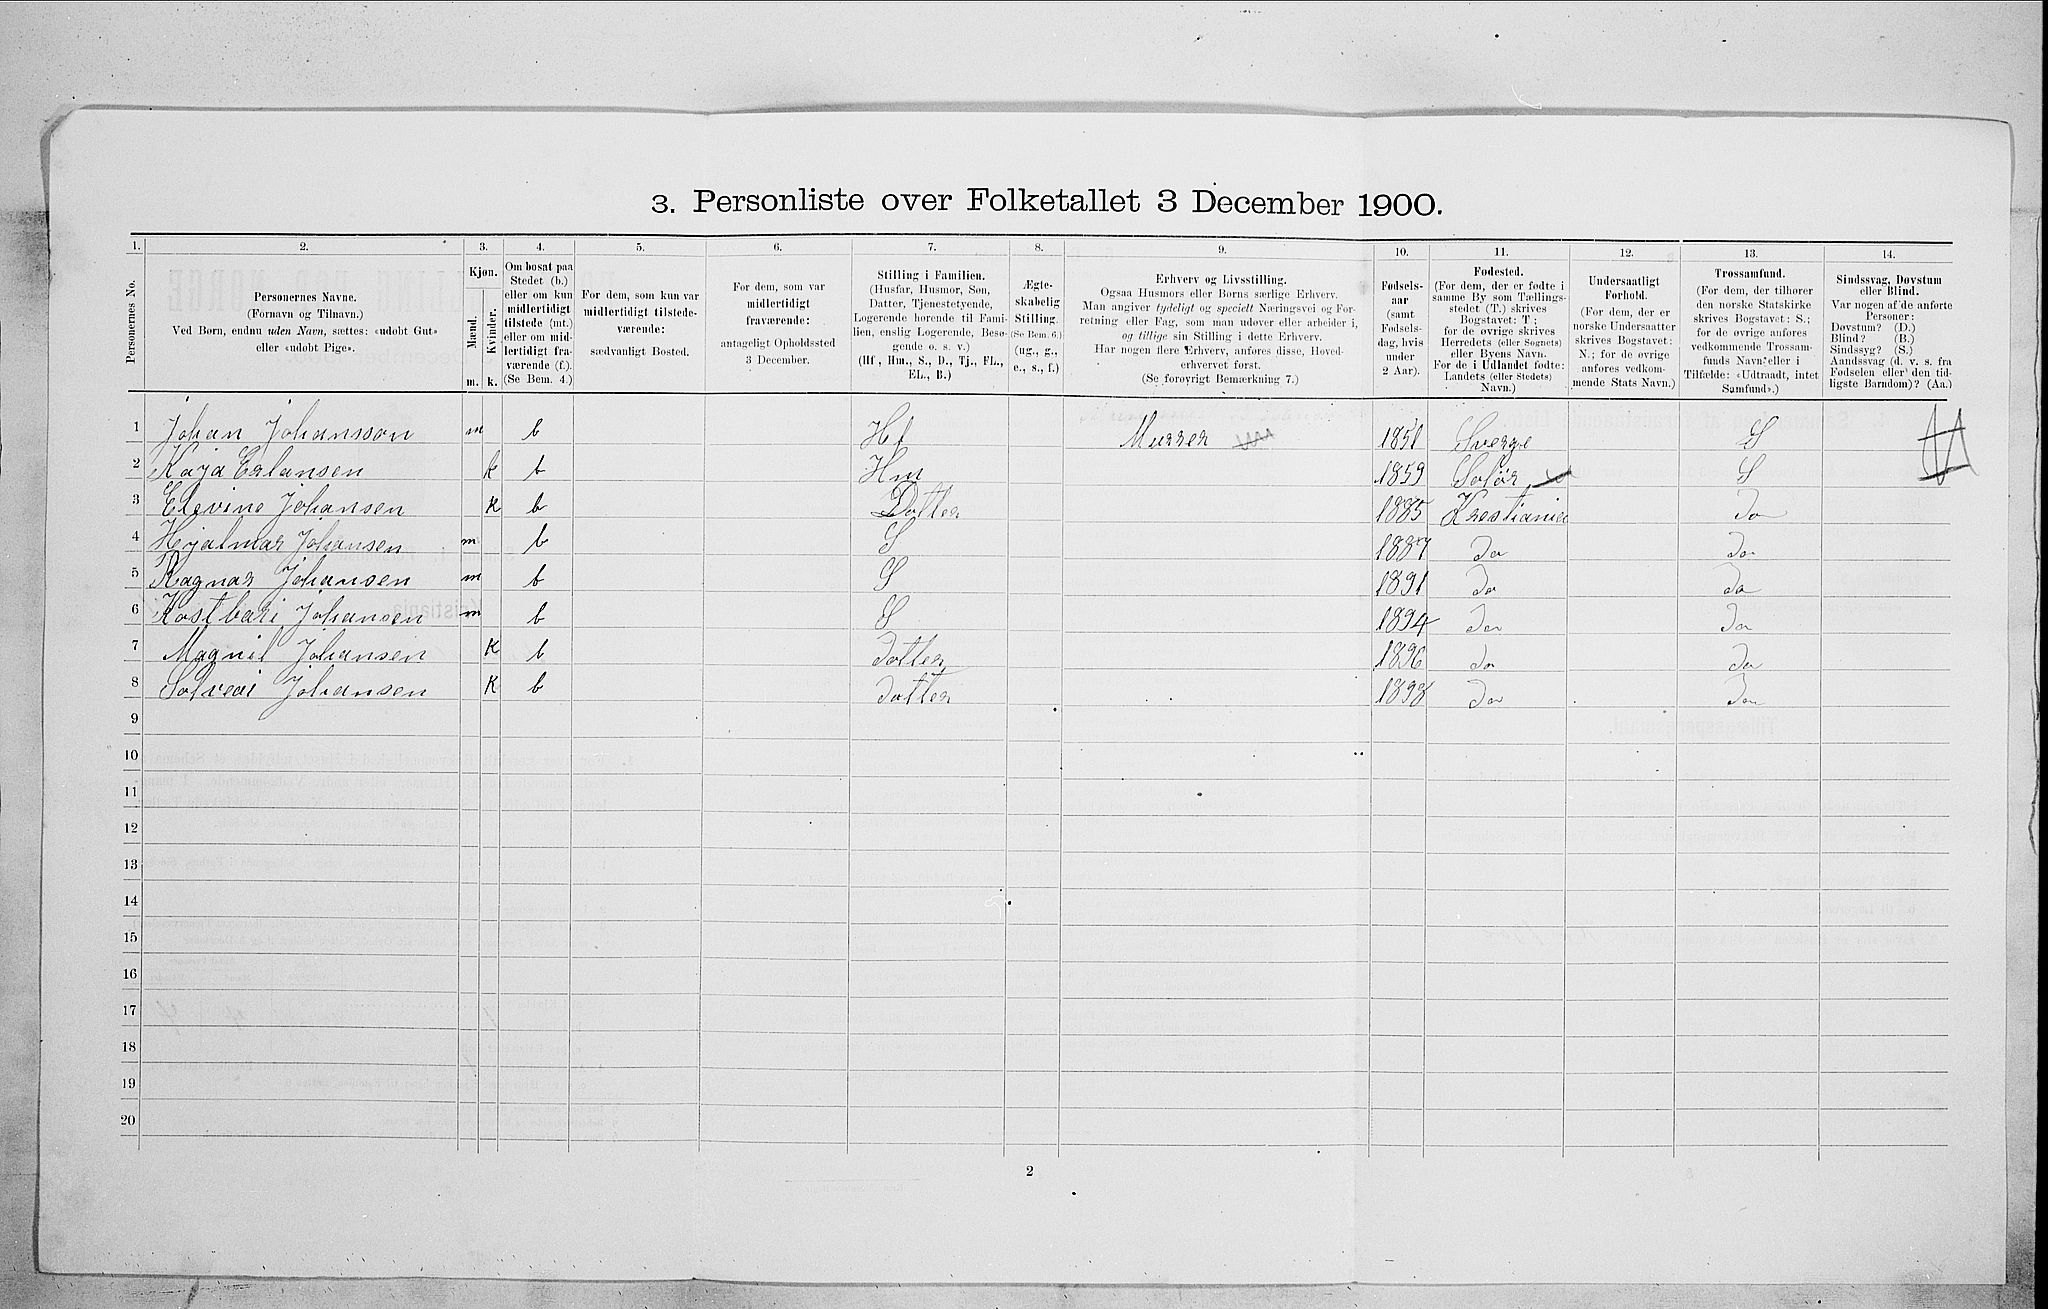 3. Personliste over Folketallet 3 December 1900.
1. 2. 3. 4. 5. 6. 7. 8. 9. 10. 11. 12. 13. 14.
Personernes No.
Personernes Navne.
(Fornavn og Tilnavn.)
Ved Børn, endnu uden Navn, sættes: «udøbt Gut»
eller «udøbt Pige».
Kjøn.
Mænd.
Kvinder.
m. k.
Om bosat paa
Stedet (b.)
eller om kun
midlertidigt
tilstede (mt.)
eller om mid-
lertidigt fra-
værende (f.).
(Se Bem. 4.)
For dem, som kun var
midlertidigt tilstede-
værende:
sædvanligt Bosted.
For dem, som var
midlertidigt
fraværende:
antageligt Opholdssted
3 December.
Stilling i Familien.
(Husfar, Husmor, Søn,
Datter, Tjenestetyende,
Logerende hørende til Fami-
lien, enslig Logerende, Besø-
gende o. s. v.)
(Hf, Hm., S., D., Tj., FL.,
EL., B.)
Ægte-
skabelig
Stilling.
(Se Bem. 6.)
(ug., g.,
e., s., f.)
Erhverv og Livsstilling.
Ogsaa Husmors eller Børns særlige Erhverv.
Man angiver tydeligt og specielt Næringsvei og For-
retning eller Fag, som man udøver eller arbeider i,
og tillige sin Stilling i dette Erhverv.
Har nogen flere Erhverv, anføres disse, Hoved-
erhvervet først.
(Se forøvrigt Bemærkning 7.)
Fødsels-
aar
(samt
Fødsels-
dag, hvis
under
2 Aar).
Fødested.
(For dem, der er fødte i
samme By som Tællings-
stedet (T.) skrives
Bogstavet: T;
for de øvrige skrives
Herredets (eller Sognets)
eller Byens Navn.
For de i Udlandet fødte:
Landets (eller Stedets)
Navn.)
Undersaatligt
Forhold.
(For dem, der er
norske Undersaatter
skrives Bogstavet:
N.; for de øvrige
anføres vedkom-
mende Stats Navn.)
Trossamfund.
(For dem, der tilhører
den norske Statskirke
skrives Bogstavet: S.;
for de øvrige anføres
vedkommende Trossam-
funds Navn, eller i
Tilfælde: «Udtraadt, intet
Samfund».)
Sindssvag, Døvstum
eller Blind.
Var nogen af de anførte
Personer:
Døvstum? (D.)
Blind? (B.)
Sindssyg? (S.)
Aandssvag (d. v. s. fra
Fødselen eller den tid-
ligste Barndom)? (Aa.)
1 Johan Johansson m b Hf Murrer 1851 Sverge S
2 Kaja Erlansen k b Hm 1859 Solør S
3 Elevine Johansen k b Dotter 1885 Krestiania Do
4 Hjalmar Johansen m b S 1887 Do Do
5 Ragnar Johansen m b S 1891 Do Do
6 Kostbari Johansen m b S 1894 Do Do
7 Magnil Johansen k b Dotter 1896 Do Do
8 Solveai Johansen k b Dotter 1898 Do Do
9
10
11
12
13
14
15
16
17
18
19
20
2